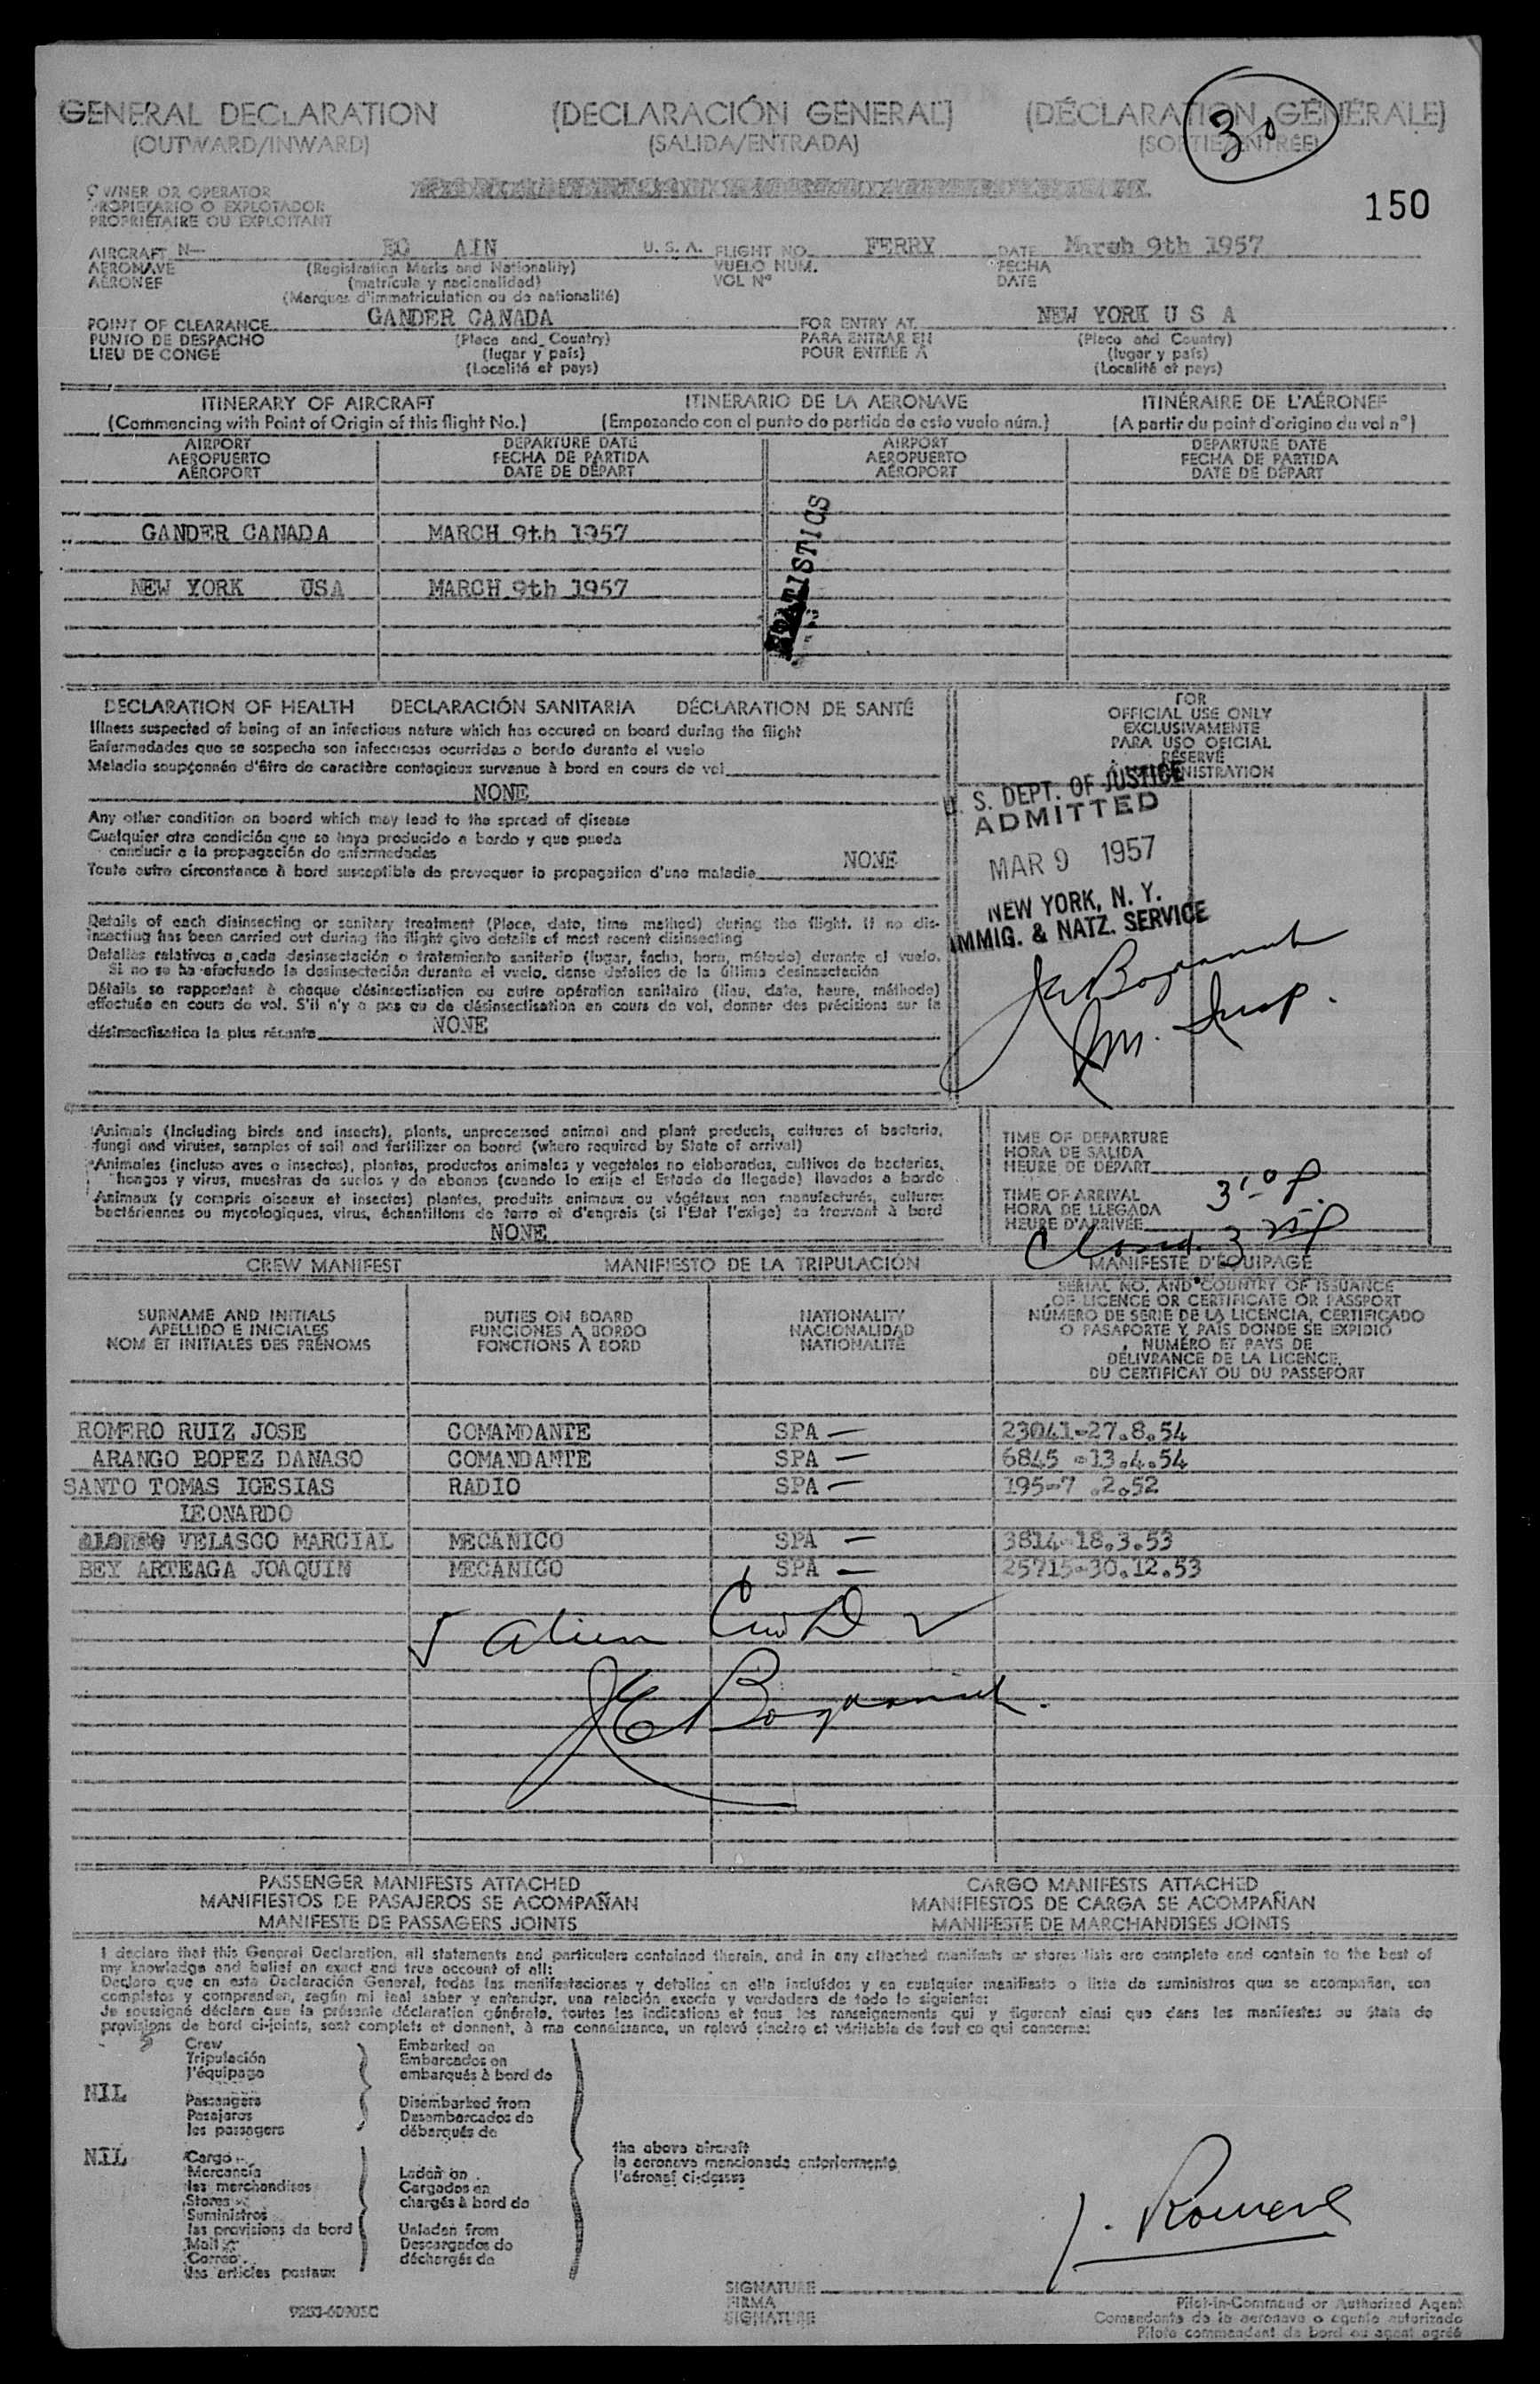 GENERAL DECLARATION (DECLARACIÓN GENERAL) (DÉCLARATION GÉNÉRALE)
(OUTWARD/INWARD) (SALIDA/ENTRADA) (SORTIE/ENTRÉE)
30
150
OWNER OR OPERATOR
PROPIETARIO O EXPLOTADOR
PROPRIÉTAIRE OU EXPLOITANT
AIRCRAFT N— EC AIN U. S. A. FLIGHT NO. FERRY DATE March 9th 1957
AERONAVE (Registration Marks and Nationality) VUELO NUM. FECHA
AÉRONEF (matrícula y nacionalidad) VOL Nº DATE
(Marques d'immatriculation ou de nationalité)
POINT OF CLEARANCE GANDER CANADA FOR ENTRY AT NEW YORK U S A
PUNTO DE DESPACHO (Place and Country) PARA ENTRAR EN (Place and Country)
LIEU DE CONGÉ (lugar y país) POUR ENTRÉE À (lugar y país)
(Localité et pays) (Localité et pays)
ITINERARY OF AIRCRAFT ITINERARIO DE LA AERONAVE ITINÉRAIRE DE L'AÉRONEF
(Commencing with Point of Origin of this flight No.) (Empezando con el punto de partida de este vuelo núm.) (A partir du point d'origine du vol nº)
AIRPORT DEPARTURE DATE AIRPORT DEPARTURE DATE
AEROPUERTO FECHA DE PARTIDA AEROPUERTO FECHA DE PARTIDA
AÉROPORT DATE DE DÉPART AÉROPORT DATE DE DÉPART
GANDER CANADA MARCH 9th 1957
NEW YORK USA MARCH 9th 1957
STATISTICS
DECLARATION OF HEALTH DECLARACIÓN SANITARIA DÉCLARATION DE SANTÉ
Illness suspected of being of an infectious nature which has occured on board during the flight
Enfermedades que se sospecha son infecciosas ocurridas a bordo durante el vuelo
Maladie soupçonnée d'être de caractère contagieux survenue à bord en cours de vol
NONE
Any other condition on board which may lead to the spread of disease
Cualquier otra condición que se haya producido a bordo y que pueda
conducir a la propagación de enfermedades
Toute autre circonstance à bord susceptible de provoquer la propagation d'une maladie NONE
Details of each disinsecting or sanitary treatment (Place, date, time method) during the flight. If no dis-
insecting has been carried out during the flight give details of most recent disinsecting
Detalles relativos a cada desinsectación o tratamiento sanitario (lugar, fecha, hora, método) durante el vuelo.
Si no se ha efectuado la desinsectación durante el vuelo, dense detalles de la última desinsectación
Détails se rapportant à chaque désinsectisation ou autre opération sanitaire (lieu, date, heure, méthode)
effectuée en cours de vol. S'il n'y a pas eu de désinsectisation en cours de vol, donner des précisions sur la
désinsectisation la plus récente NONE
FOR
OFFICIAL USE ONLY
EXCLUSIVAMENTE
PARA USO OFICIAL
RÉSERVÉ
NISTRATION
U. S. DEPT. OF JUSTICE
ADMITTED
MAR 9 1957
NEW YORK, N. Y.
IMMIG. & NATZ. SERVICE
Im. Insp.
Animals (including birds and insects), plants, unprocessed animal and plant products, cultures of bacteria,
fungi and viruses, samples of soil and fertilizer on board (where required by State of arrival)
Animales (incluso aves o insectos), plantas, productos animales y vegetales no elaborados, cultivos de bacterias,
hongos y virus, muestras de suelos y de abonos (cuando lo exija el Estado de llegada) llevados a bordo
Animaux (y compris oiseaux et insectes) plantes, produits animaux ou végétaux non manufacturés, cultures
bactériennes ou mycologiques, virus, échantillons de terre et d'engrais (si l'Etat l'exige) se trouvant à bord
NONE
TIME OF DEPARTURE
HORA DE SALIDA
HEURE DE DÉPART
TIME OF ARRIVAL 310 P.
HORA DE LLEGADA
HEURE D'ARRIVÉE
Closed. 3 25 P
CREW MANIFEST MANIFIESTO DE LA TRIPULACIÓN MANIFESTE D'ÉQUIPAGE
SURNAME AND INITIALS DUTIES ON BOARD NATIONALITY SERIAL NO. AND COUNTRY OF ISSUANCE
APELLIDO E INICIALES FUNCIONES A BORDO NACIONALIDAD OF LICENCE OR CERTIFICATE OR PASSPORT
NOM ET INITIALES DES PRÉNOMS FONCTIONS À BORD NATIONALITÉ NÚMERO DE SERIE DE LA LICENCIA, CERTIFICADO
O PASAPORTE Y PAÍS DONDE SE EXPIDIÓ
NUMÉRO ET PAYS DE
DÉLIVRANCE DE LA LICENCE,
DU CERTIFICAT OU DU PASSEPORT
ROMERO RUIZ JOSE COMAMDANTE SPA — 23041-27.8.54
ARANGO BOPEZ DANASO COMANDANTE SPA — 6845 -13.4.54
SANTO TOMAS IGESIAS RADIO SPA — 195-7 .2.52
LEONARDO
VELASCO MARCIAL MECANICO SPA — 3814-18.3.53
BEY ARTEAGA JOAQUIN MECANICO SPA — 25715-30.12.53
√ alien Crew D ✓
J E Bogdanich.
PASSENGER MANIFESTS ATTACHED CARGO MANIFESTS ATTACHED
MANIFIESTOS DE PASAJEROS SE ACOMPAÑAN MANIFIESTOS DE CARGA SE ACOMPAÑAN
MANIFESTE DE PASSAGERS JOINTS MANIFESTE DE MARCHANDISES JOINTS
I declare that this General Declaration, all statements and particulars contained therein, and in any attached manifests or stores lists are complete and contain to the best of
my knowledge and belief an exact and true account of all:
Declaro que en esta Declaración General, todas las manifestaciones y detalles en ella incluídos y en cualquier manifiesto o lista de suministros que se acompañen, son
completos y comprenden, según mi leal saber y entender, una relación exacta y verdadera de todo lo siguiente:
Je soussigné déclare que la présente déclaration générale, toutes les indications et tous les renseignements qui y figurent ainsi que dans les manifestes ou états de
provisions de bord ci-joints, sont complets et donnent, à ma connaissance, un relevé sincère et véritable de tout ce qui concerne:
Crew Embarked on
Tripulación Embarcados en
l'équipage embarqués à bord de
NIL Passengers Disembarked from
Pasajeros Desembarcados de
les passagers débarqués de
the above aircraft
la aeronave mencionada anteriormente
l'aéronef ci-dessus
NIL Cargo
Mercancía Laden on
les marchandises Cargados en
Stores chargés à bord de
Suministros
las provisions de bord Unladen from
Mail Descargados de
Correo déchargés de
les articles postaux
J. Romero
SIGNATURE
FIRMA
SIGNATURE
Pilot-in-Command or Authorized Agent
Comandante de la aeronave o agente autorizado
Pilote commandant de bord ou agent agréé